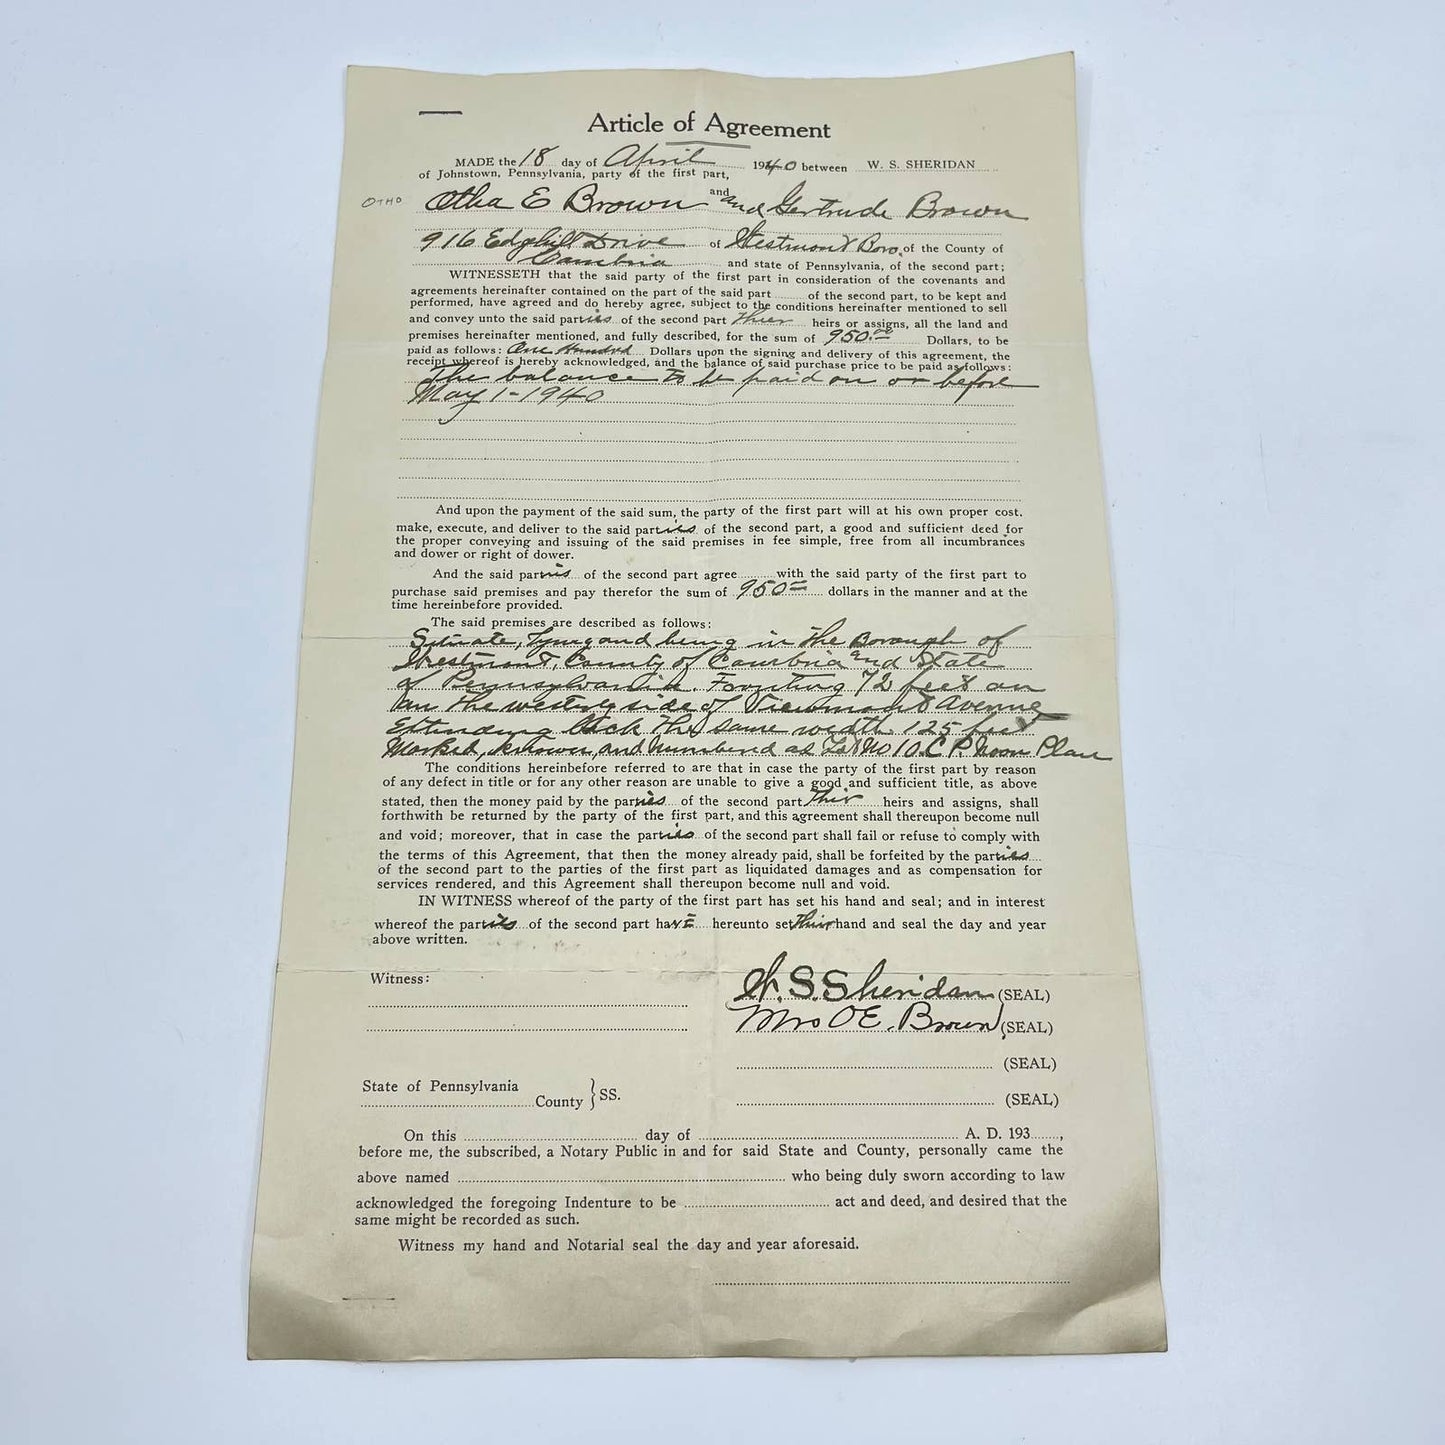 Article of Agreement
MADE the 18 day of April 1940 between W. S. SHERIDAN
of Johnstown, Pennsylvania, party of the first part,
and
OTHO Otha E Brown and Gertrude Brown
916 Edgehill Drive of Westmont Boro. of the County of
Cambria and state of Pennsylvania, of the second part;
WITNESSETH that the said party of the first part in consideration of the covenants and
agreements hereinafter contained on the part of the said part of the second part, to be kept and
performed, have agreed and do hereby agree, subject to the conditions hereinafter mentioned to sell
and convey unto the said parties of the second part their heirs or assigns, all the land and
premises hereinafter mentioned, and fully described, for the sum of 950.00 Dollars, to be
paid as follows: One Hundred Dollars upon the signing and delivery of this agreement, the
receipt whereof is hereby acknowledged, and the balance of said purchase price to be paid as follows:
The balance to be paid on or before
May 1-1940
And upon the payment of the said sum, the party of the first part will at his own proper cost,
make, execute, and deliver to the said parties of the second part, a good and sufficient deed for
the proper conveying and issuing of the said premises in fee simple, free from all incumbrances
and dower or right of dower.
And the said parties of the second part agree with the said party of the first part to
purchase said premises and pay therefor the sum of 950.00 dollars in the manner and at the
time hereinbefore provided.
The said premises are described as follows:
Situate, lying and being in the Borough of
Westmont, County of Cambria and State
of Pennsylvania. Fronting 72 feet on
the westerly side of Viewmont Avenue
Extending back the same width 125 feet
Marked, known, and numbered as Lot No 10 C P. Moon Plan
The conditions hereinbefore referred to are that in case the party of the first part by reason
of any defect in title or for any other reason are unable to give a good and sufficient title, as above
stated, then the money paid by the parties of the second part their heirs and assigns, shall
forthwith be returned by the party of the first part, and this agreement shall thereupon become null
and void; moreover, that in case the parties of the second part shall fail or refuse to comply with
the terms of this Agreement, that then the money already paid, shall be forfeited by the parties
of the second part to the parties of the first part as liquidated damages and as compensation for
services rendered, and this Agreement shall thereupon become null and void.
IN WITNESS whereof of the party of the first part has set his hand and seal; and in interest
whereof the parties of the second part have hereunto set their hand and seal the day and year
above written.
Witness:
W. S. Sheridan (SEAL)
Mrs O E. Brown (SEAL)
(SEAL)
State of Pennsylvania
County } SS.
(SEAL)
On this day of A. D. 193 ,
before me, the subscribed, a Notary Public in and for said State and County, personally came the
above named who being duly sworn according to law
acknowledged the foregoing Indenture to be act and deed, and desired that the
same might be recorded as such.
Witness my hand and Notarial seal the day and year aforesaid.